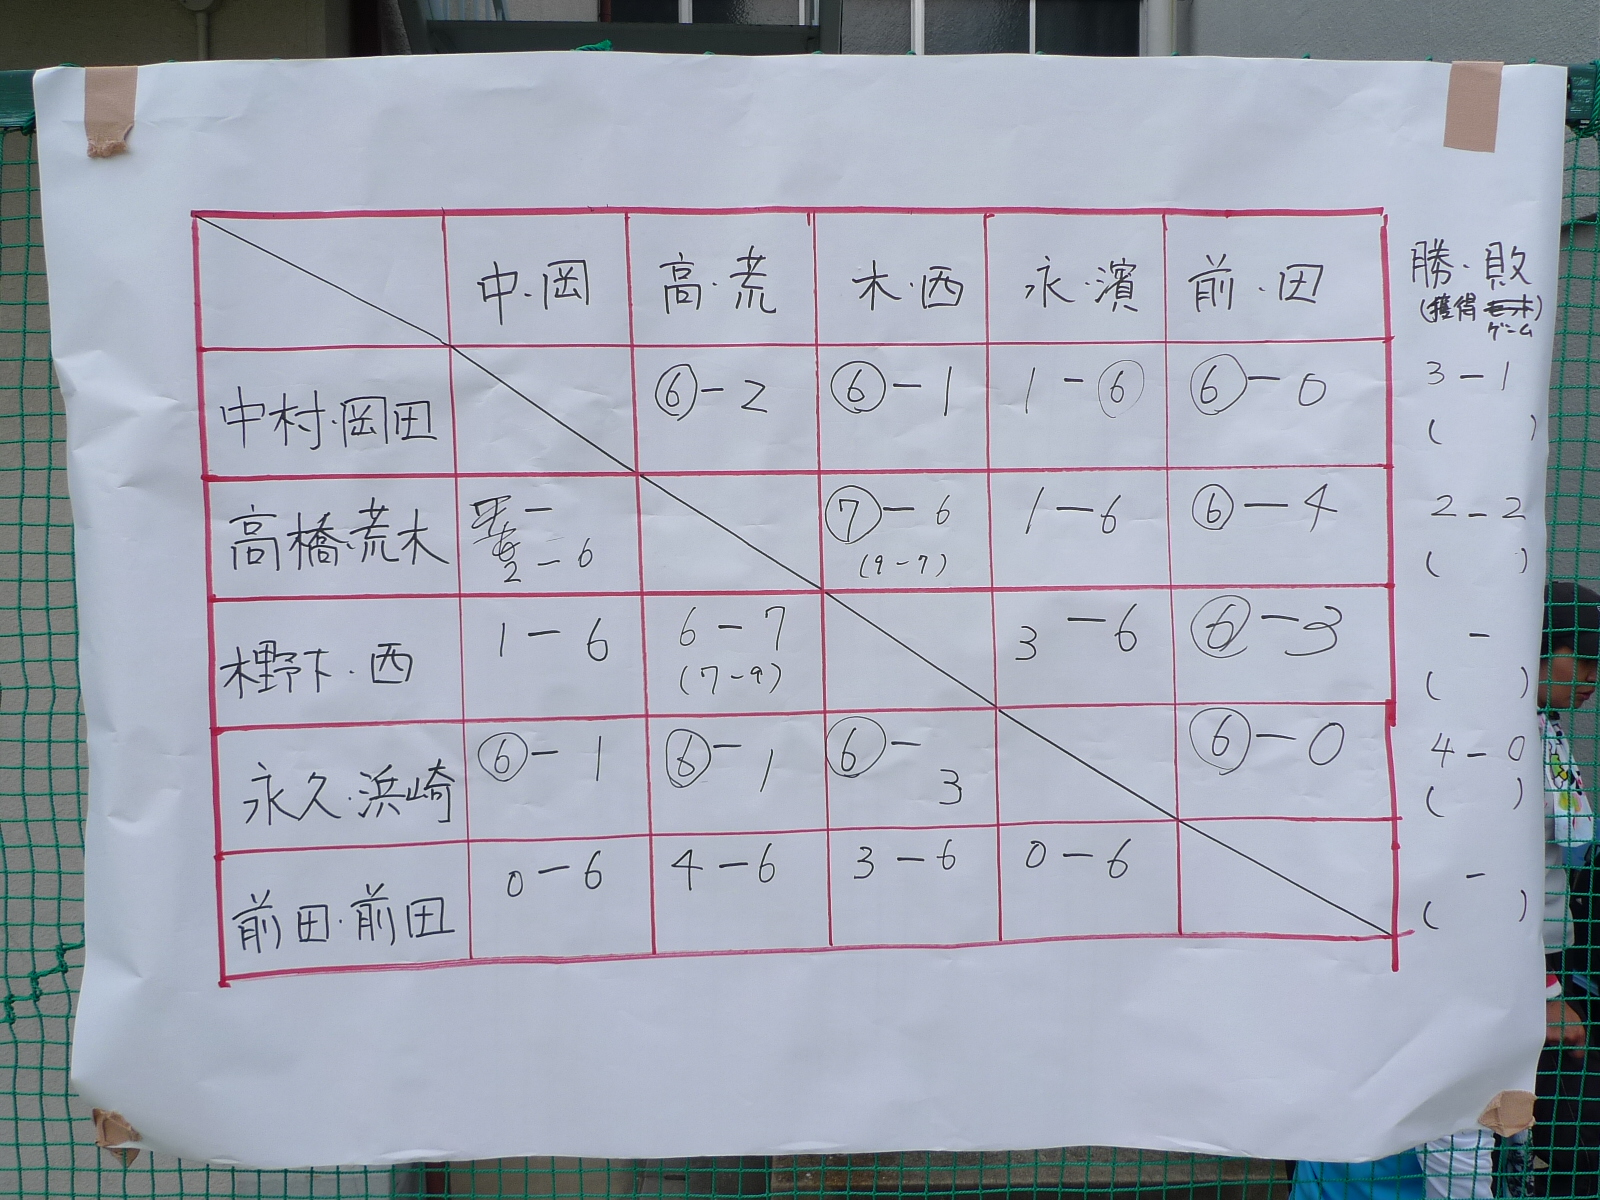 中・岡 高・荒 木・西 永・濱 前・田 勝・敗
(獲得 ゲーム)
中村・岡田 ⑥-2 ⑥-1 1-⑥ ⑥-0 3-1
( )
高橋・荒木 2-6 ⑦-6 1-6 ⑥-4 2-2
(9-7) ( )
樫野木・西 1-6 6-7 3-6 ⑥-3 -
(7-9) ( )
永久・浜崎 ⑥-1 ⑥-1 ⑥-3 ⑥-0 4-0
( )
前田・前田 0-6 4-6 3-6 0-6 -
( )